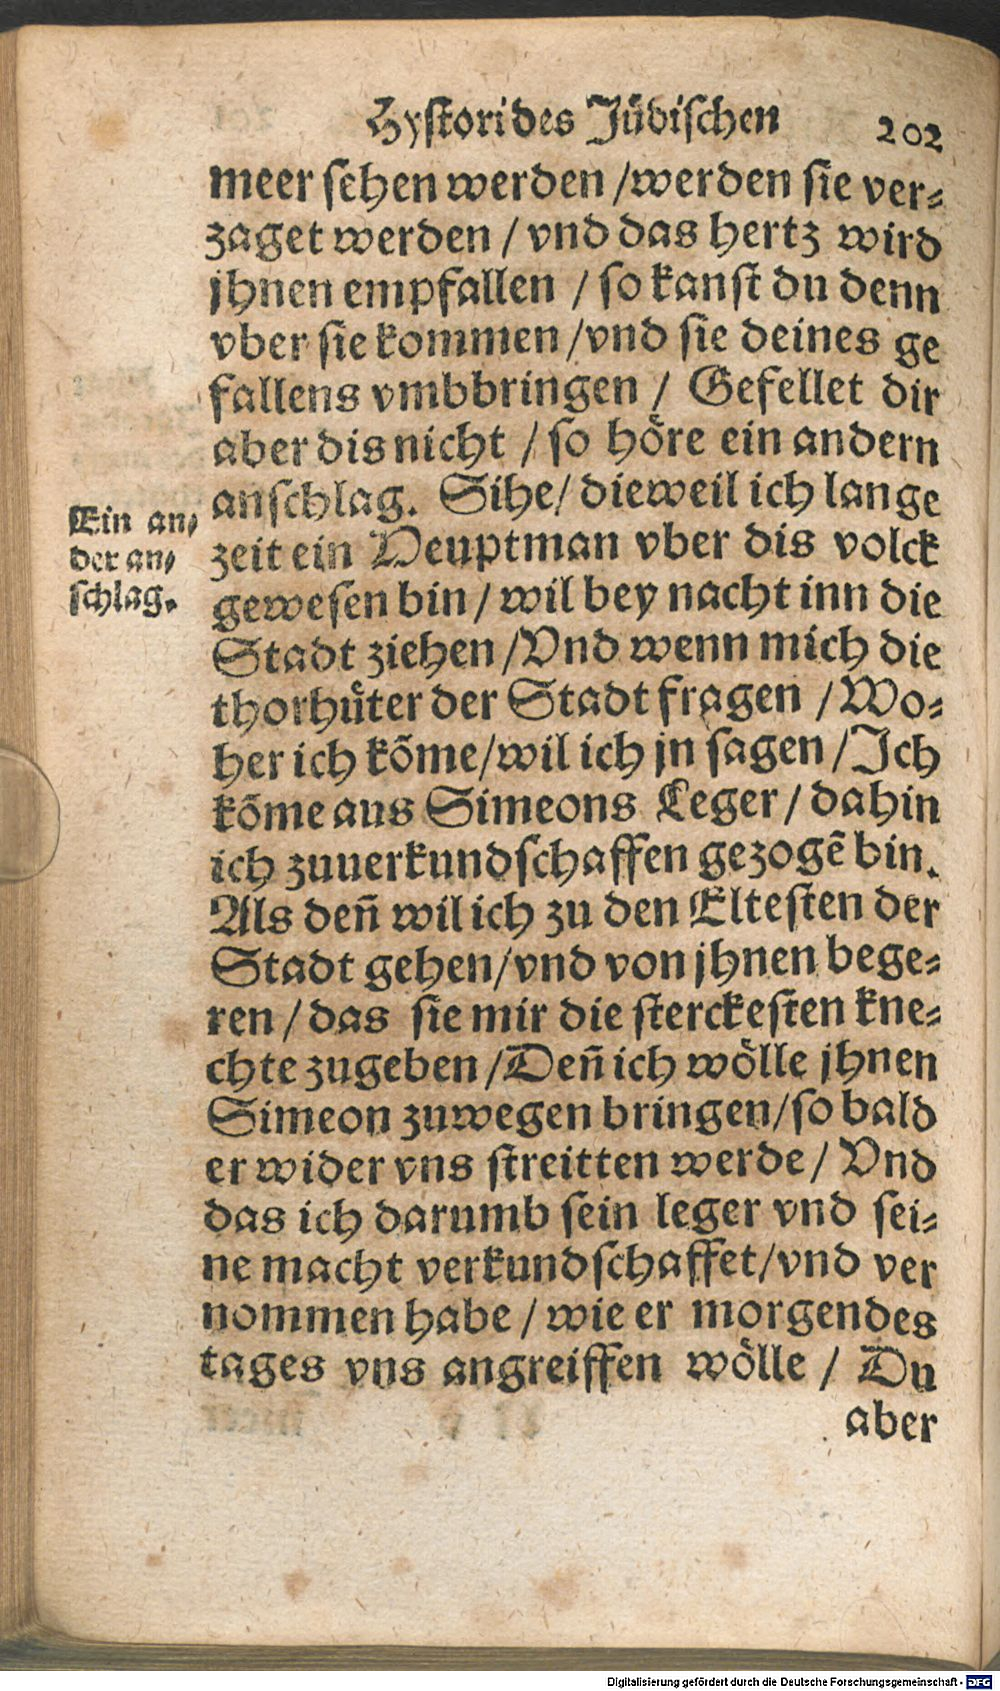 Hystori des Jüdischen 202
meer sehen werden /werden sie ver⸗
zaget werden / vnd das hertz wird
jhnen empfallen / so kanst du denn
vber sie kommen /vnd sie deines ge
fallens vmbbringen / Gefellet dir
aber dis nicht / so höre ein andern
anschlag. Sihe/ dieweil ich lange
Ein an⸗
der an⸗
schlag.
zeit ein Heuptman vber dis volck
gewesen bin / wil bey nacht inn die
Stadt ziehen /Vnd wenn mich die
thorhüter der Stadt fragen / Wo⸗
her ich kõme/wil ich jn sagen /Ich
kõme aus Simeons Leger / dahin
ich zuuerkundschaffen gezogẽ bin.
Als deñ wil ich zu den Eltesten der
Stadt gehen/vnd von jhnen bege⸗
ren / das sie mir die sterckesten kne⸗
chte zugeben /Deñ ich wölle jhnen
Simeon zuwegen bringen/so bald
er wider vns streitten werde / Vnd
das ich darumb sein leger vnd sei⸗
ne macht verkundschaffet/vnd ver
nommen habe / wie er morgendes
tages vns angreiffen wölle / Du
aber
Digitalisierung gefördert durch die Deutsche Forschungsgemeinschaft - DFG